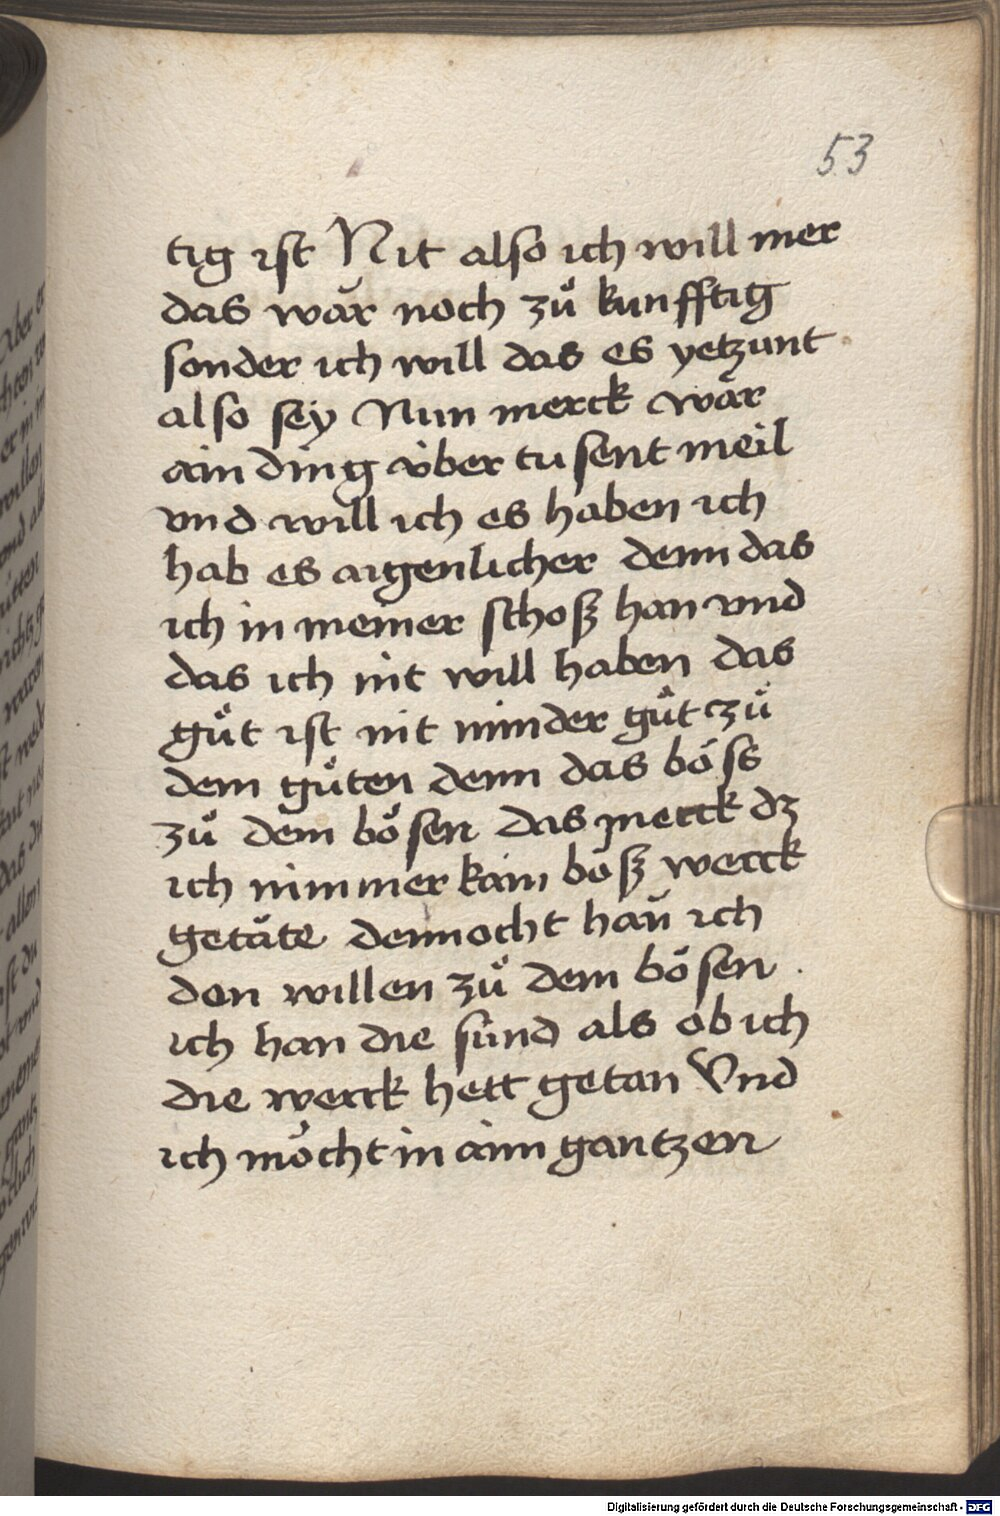 53
tig ist Nit also ich will mer
das wăr noch zů kunfftig
sonder ich will das es yetzunt
also sey Nun merck wăr
ain ding über tusent meil
vnd will ich es haben ich
hab es aigenlicher denn das
ich in meiner schoß han vnd
das ich nit will haben das
gůt ist nit minder gůt zů
dem gůten denn das böss
zů dem bösen das merck dz
ich nimmer kain böß werck
getäte dennocht haŭ ich
den willen zů dem bösen
ich han die sünd als ob ich
die werck hett getan Vnd
ich möcht in ainn gantzen
Digitalisierung gefördert durch die Deutsche Forschungsgemeinschaft - DFG